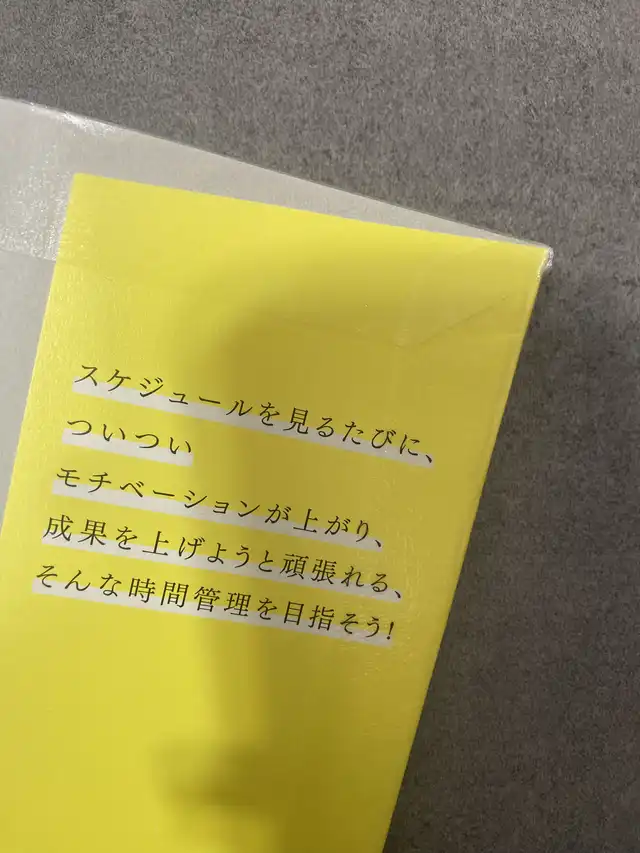 スケジュールを見るたびに、
ついつい
モチベーションが上がり、
成果を上げようと頑張れる、
そんな時間管理を目指そう!